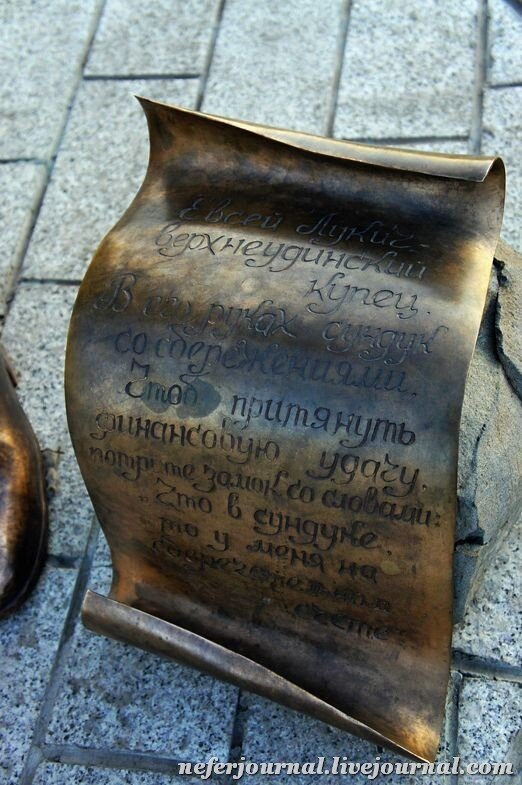 Евсей Лукич-
верхнеудинский
купец.
В его руках сундук
со сбережениями.
Чтоб притянуть
финансовую удачу,
потрите замок со словами:
"Что в сундуке,
то у меня на
сберегательном
счете
neferjournal.livejournal.com